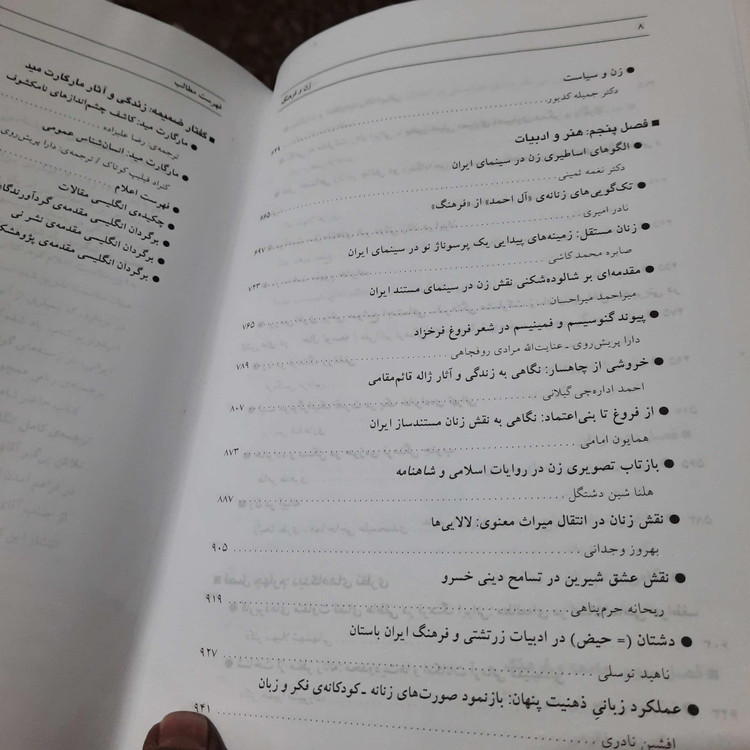 ۸
زن و فرهنگ
● زن و سیاست
دکتر جمیله کدیور
۶۲۹
■ فصل پنجم: هنر و ادبیات
● الگوهای اساطیری زن در سینمای ایران
دکتر نغمه ثمینی
۶۸۵
● تک‌گویی‌های زنانه‌ی «آل احمد» از «فرهنگ»
نادر امیری
۶۹۷
● زنان مستقل: زمینه‌های پیدایی یک پرسوناژ نو در سینمای ایران
صابره محمدکاشی
۷۴۳
● مقدمه‌ای بر شالوده‌شکنی نقش زن در سینمای مستند ایران
میراحمد میراحسان
۷۶۵
● پیوند گنوسیسم و فمینیسم در شعر فروغ فرخزاد
دارا پریش‌روی ـ عنایت‌الله مرادی روفچاهی
۷۸۹
● خروشی از چاهسار: نگاهی به زندگی و آثار ژاله قائم‌مقامی
احمد اداره‌چی گیلانی
۸۰۷
● از فروغ تا بنی‌اعتماد: نگاهی به نقش زنان مستندساز ایران
همایون امامی
۸۷۳
● بازتاب تصویری زن در روایات اسلامی و شاهنامه
هلنا شین دشتگل
۸۸۷
● نقش زنان در انتقال میراث معنوی: لالایی‌ها
بهروز وجدانی
۹۰۵
● نقش عشق شیرین در تسامح دینی خسرو
ریحانه حرم‌پناهی
۹۱۹
● دشتان (= حیض) در ادبیات زرتشتی و فرهنگ ایران باستان
ناهید توسلی
۹۲۷
● عملکرد زبانیِ ذهنیت پنهان: بازنمود صورت‌های زنانه ـ کودکانه‌ی فکر و زبان
افشین نادری
۹۴۱
فهرست مطالب
■ گفتار ضمیمه: زندگی و آثار مارگارت مید
● مارگارت مید: کاشف چشم‌اندازهای نامکشوف
ترجمه‌ی: رضا علیزاده
● مارگارت مید: انسان‌شناس عمومی
کنراد فیلیپ کوتاک / ترجمه‌ی: دارا پریش‌روی
● فهرست اعلام
● چکیده‌ی انگلیسی مقالات
● برگردان انگلیسی مقدمه‌ی گردآورندگان
● برگردان انگلیسی مقدمه‌ی نشر نی
● برگردان انگلیسی مقدمه‌ی